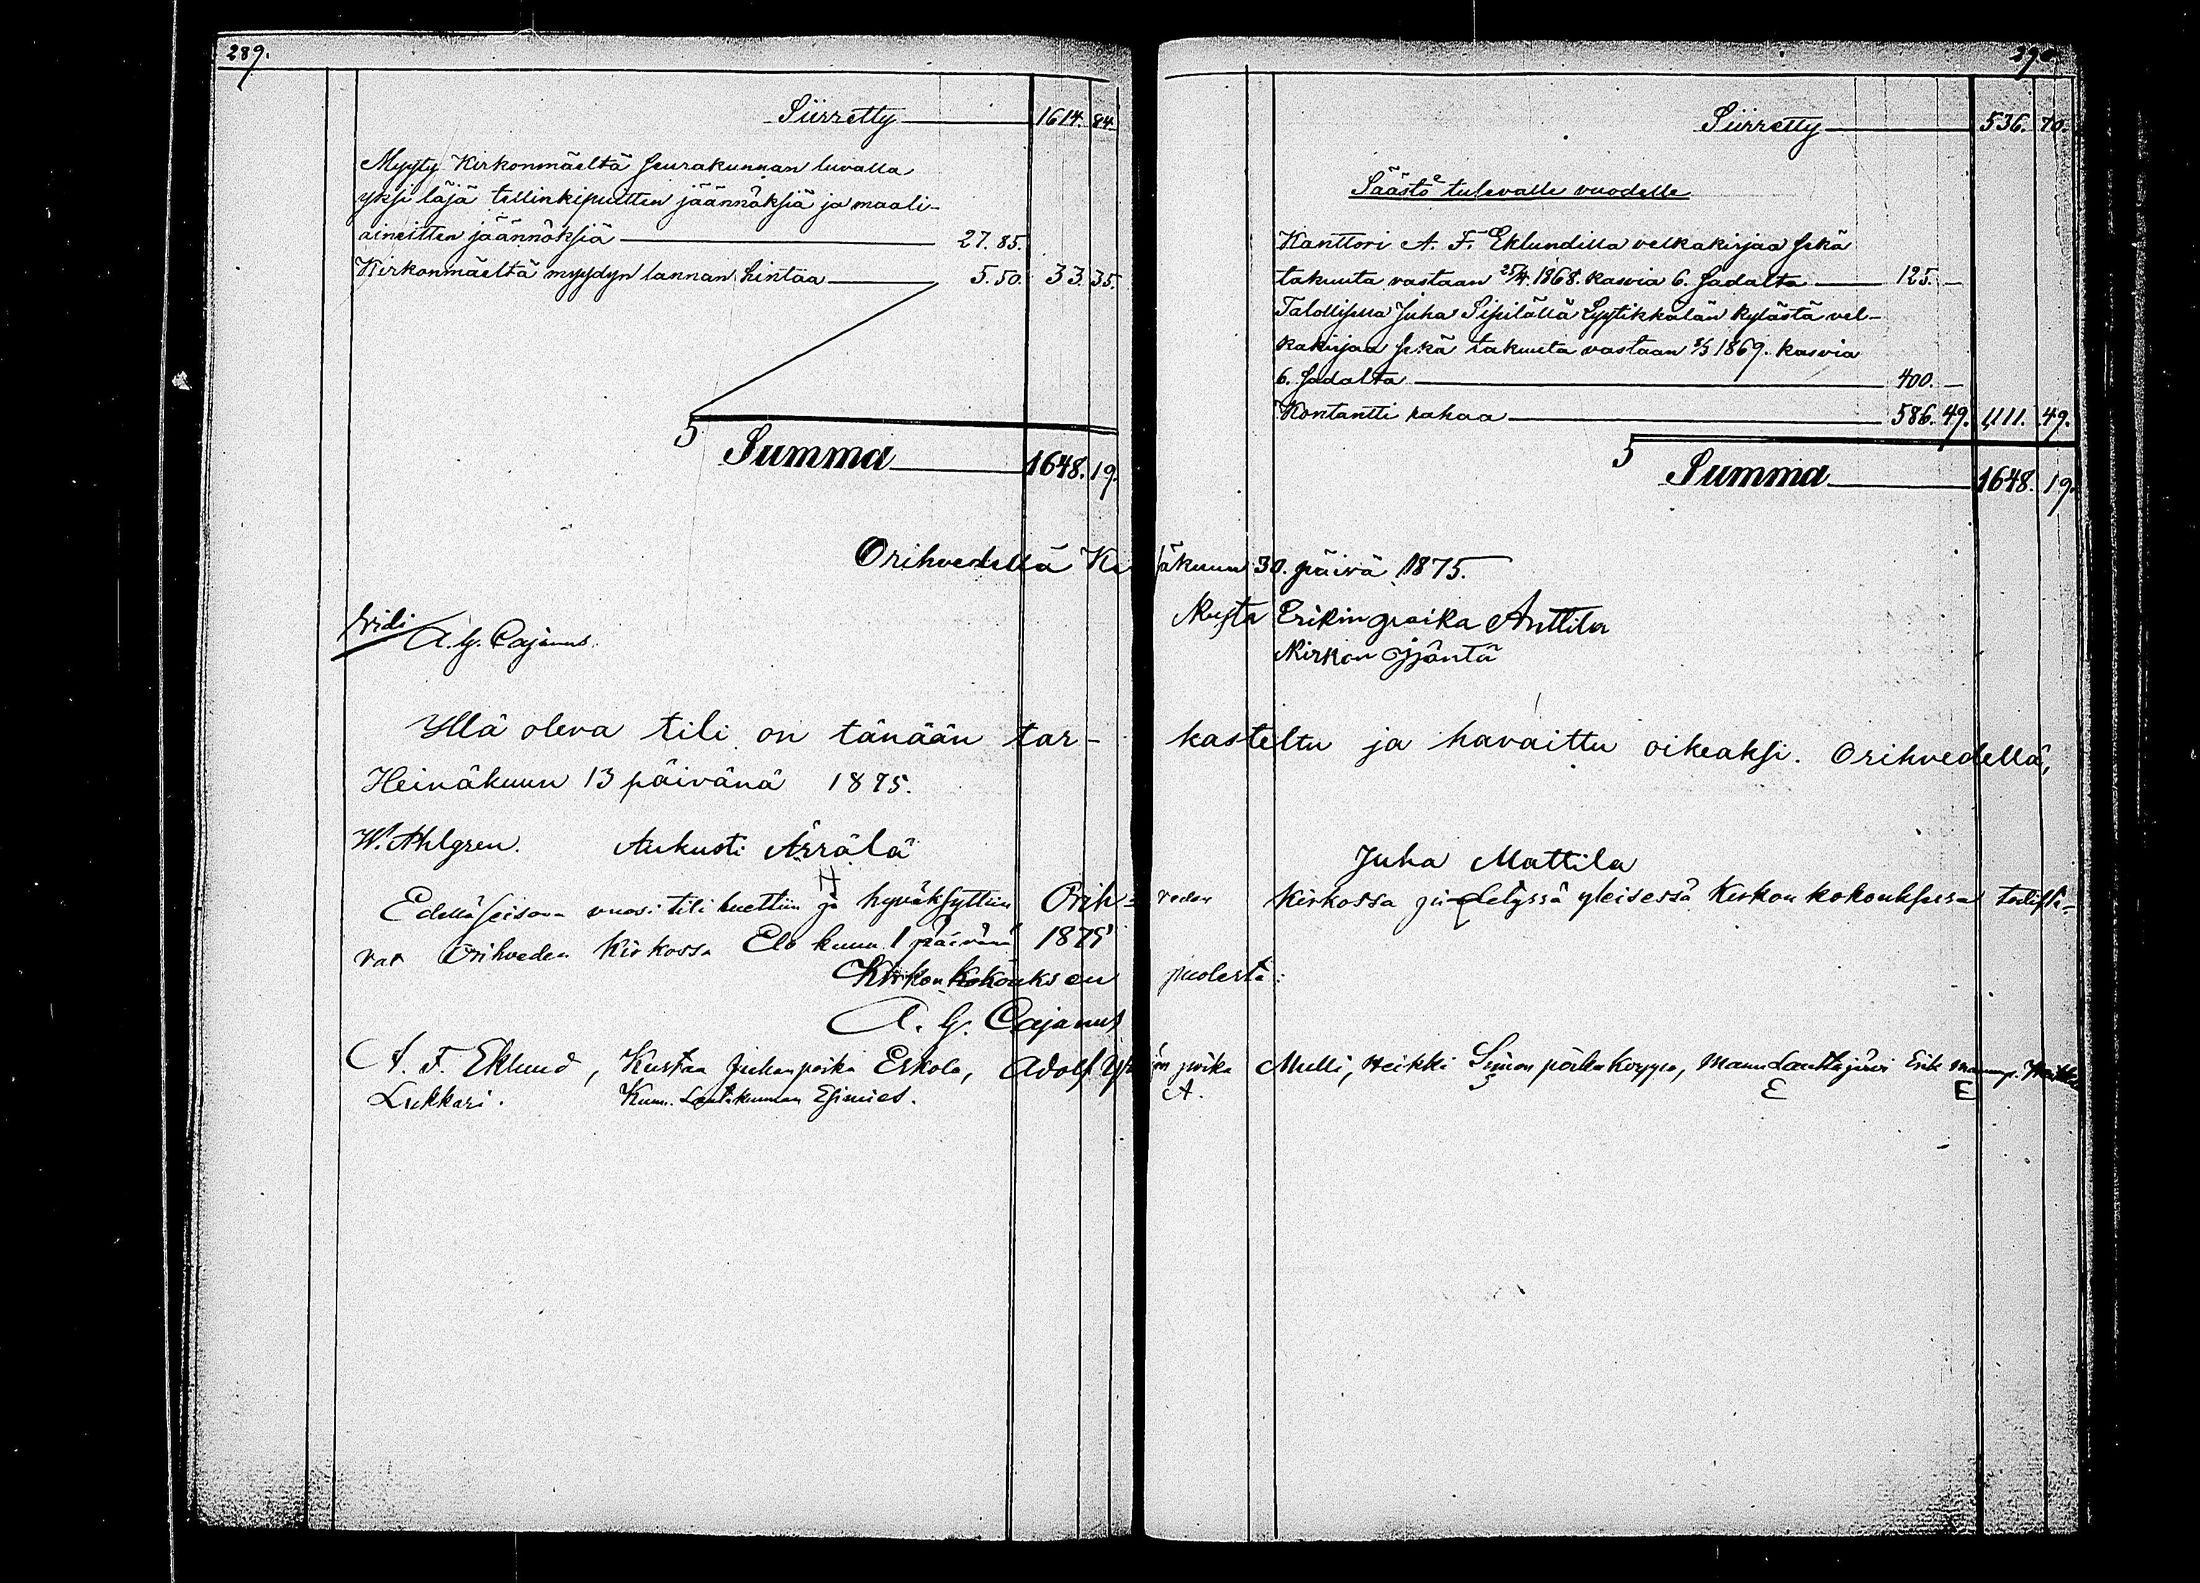 289.
Siirretty 1614. 84.
Myyty Kirkonmäeltä seurakunnan luvalla
yksi läjä tellinkipuitten jäännöksiä ja maali-
aineitten jäännöksiä 27. 85.
Kirkonmäeltä myydyn lannan hintaa 5. 50. 33. 35.
Summa 1648. 19.
290.
Siirretty 536. 70.
Säästö tulevalle vuodelle
Kanttori A. F. Eklundilla velkakirjaa sekä
takuuta vastaan 25/4. 1868. kasvia 6. sadalta 125. —
Talollisella Juha Sipilällä Lyytikkälän kylästä vel-
kakirjaa sekä takuuta vastaan 1869. kasvia
6. sadalta 400. —
Kontantti rahaa 586. 49. 1,111. 49.
Summa 1648. 19.
Orihvedellä Ke säkuun 30. päivä 1875.
Vidi
A. G. Cajanus.
Kusta Erikinpoika Anttila
Kirkon Isäntä
Yllä oleva tili on tänään tar- kasteltu ja havaittu oikeaksi. Orihvedellä,
Heinäkuun 13 päivänä 1875.
W. Ahlgren. Aukusti Ärrälä Juha Mattila
Edellä seisova vuosi tili luettiin ja hyväksyttiin Orih= veden Kirkossa pidetyssä yleisessä Kirkon kokouksessa todista-
vat Orihveden Kirkossa Elo kuun 1 päivänä 1875
Kirkon Kokouksen puolesta:
A. G. Cajanus
A. F. Eklund, Kustaa Juhanpoika Eskola, Adolf poika Mulli, Heikki Simon poika Korppu, Manu Lauttajärvi Erik
Lukkari. Kun. Lautakunnan Esimies. A. S E E